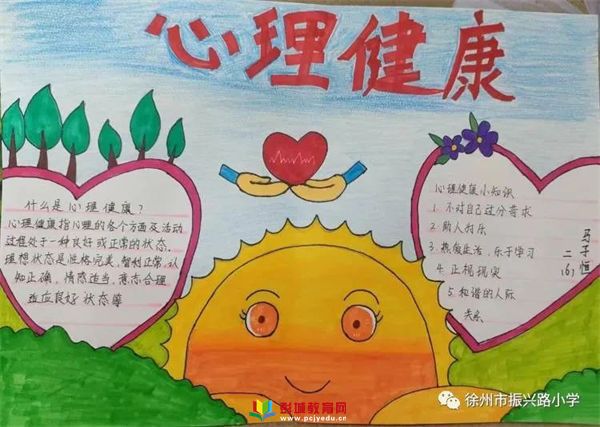 心理健康
什么是心理健康?
心理健康指心理的各个方面及活动
过程处于一种良好或正常的状态,
理想状态是性格完美,智利正常,认
知正确,情感适当,意志合理
适应良好状态等
心理健康小知识
1. 不对自己过分苛求
2. 助人为乐
3. 热爱生活,乐于学习
4. 正视现实
5. 和谐的人际
关系
二(6)
马子恒
彭城教育网
www.pcjyedu.cn
徐州市振兴路小学